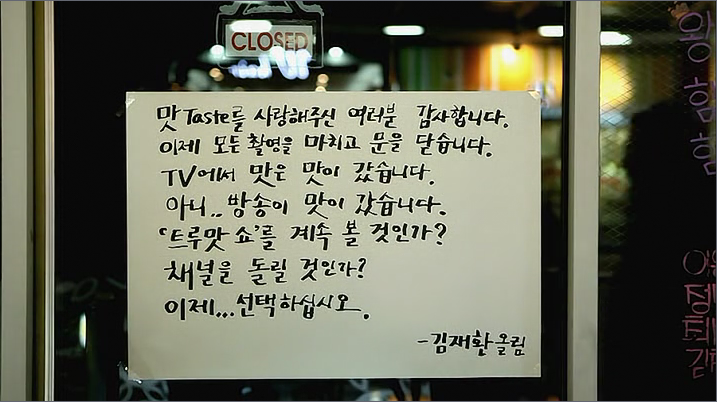 CLOSED
맛 Taste를 사랑해주신 여러분 감사합니다.
이제 모든 촬영을 마치고 문을 닫습니다.
TV에서 맛은 맛이 갔습니다.
아니.. 방송이 맛이 갔습니다.
'트루맛 쇼'를 계속 볼 것인가?
채널을 돌릴 것인가?
이제... 선택하십시오.
-김재환 올림